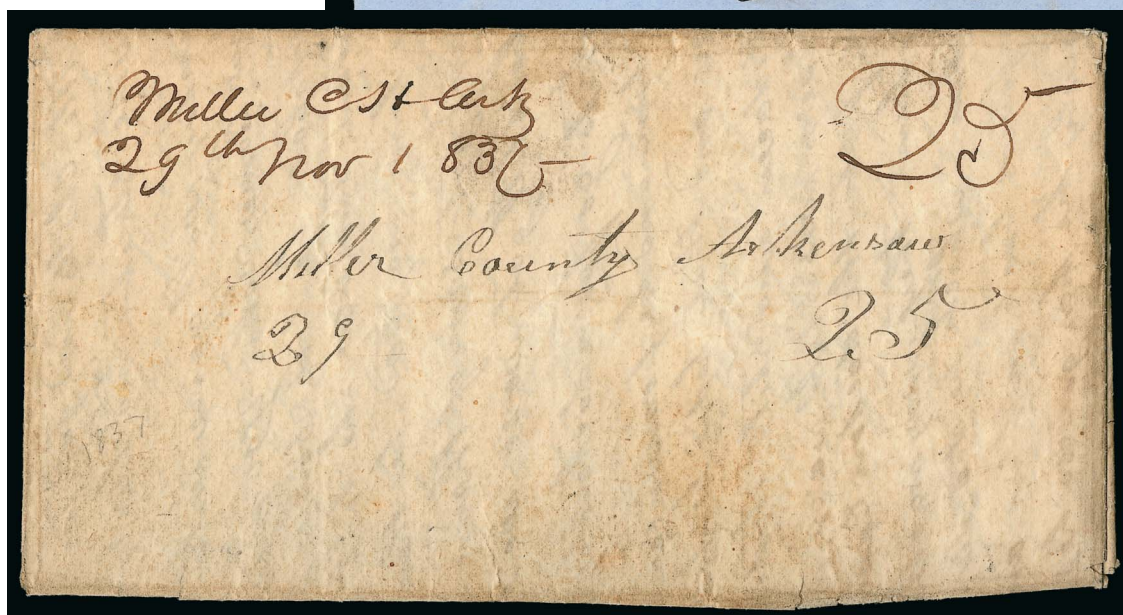 Miller Ct Ark 25
29th Nov 1837
Miller County Arkensaw
29 25
1837